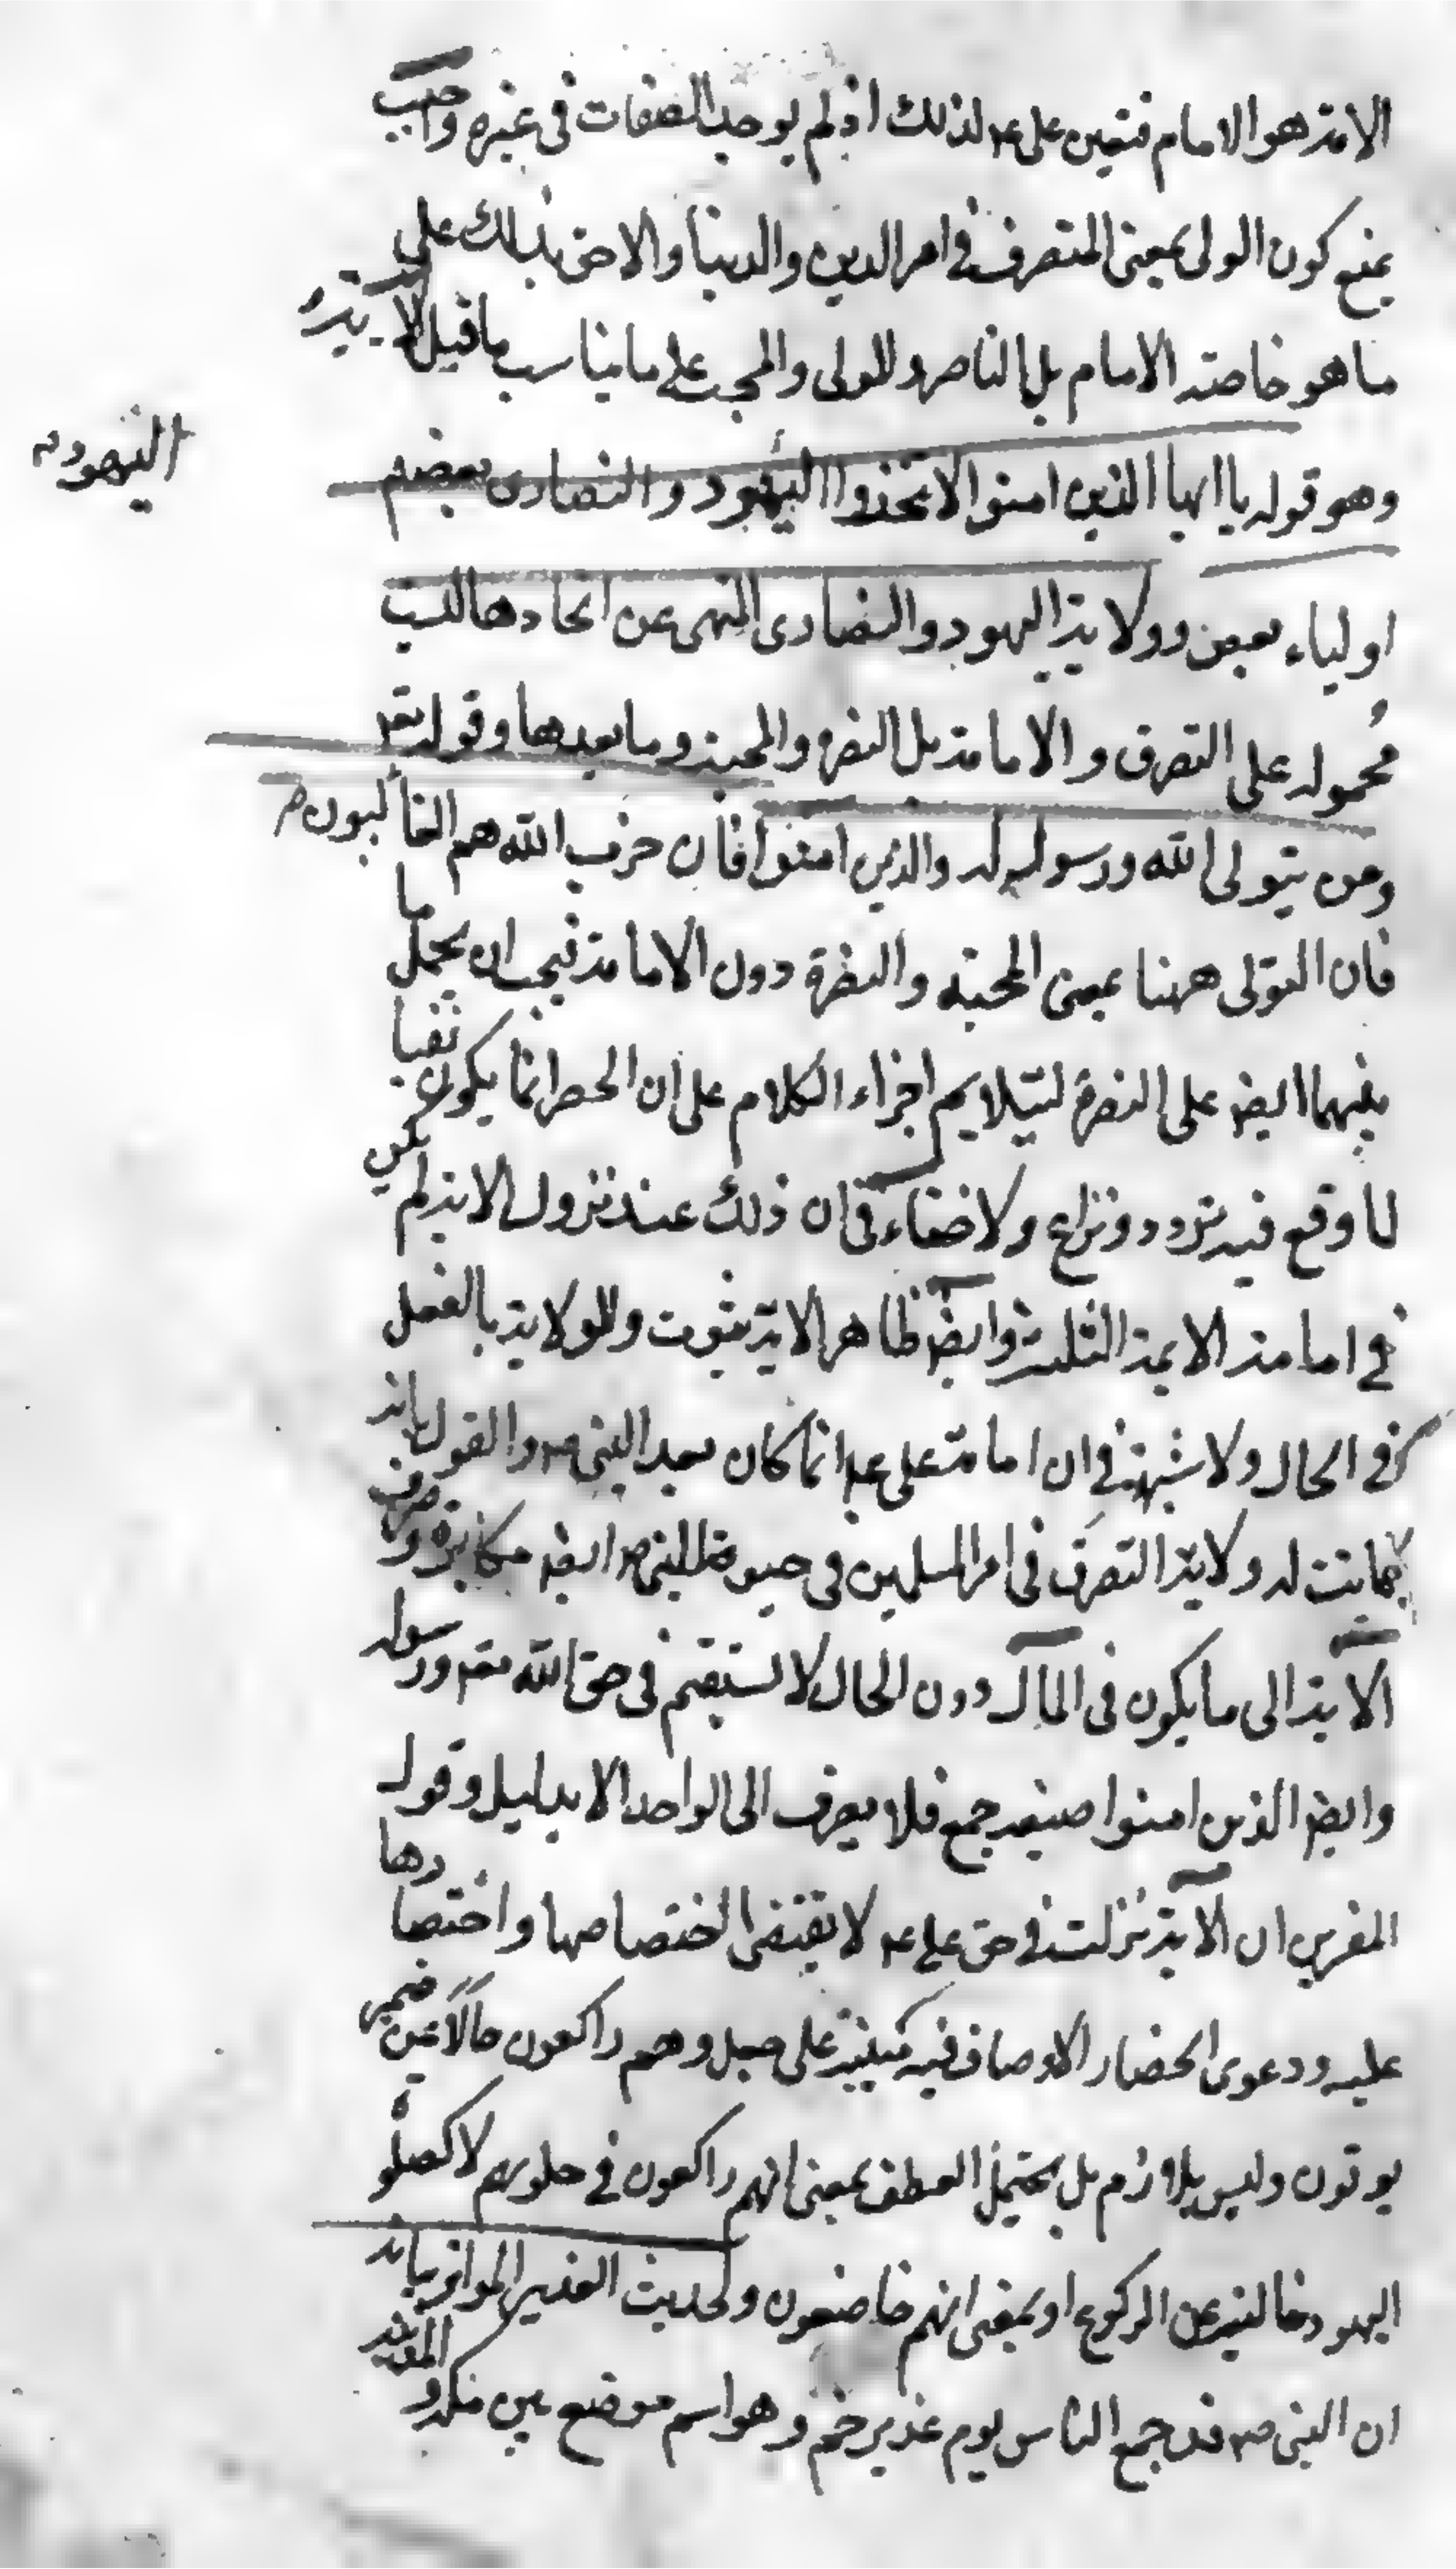 الامة هو الامام فتعين على عم لذلك اذ لم يوجد الصفات فى غيره واجيب
بمنع كون الولى بمعنى المتصرف فى امر الدين والدنيا والاحق بذلك على
ما هو خاصة الامام بل الناصر والمولى والمحب على ما يناسب ما قبل الاية
وهو قوله يا ايها الذين امنوا لا تتخذوا اليهود والنصارى بعضهم
اليهود
اولياء بعض وولاية اليهود والنصارى النهى عن اتخاذها ليست
محموله على التصرف والامامة بل النصرة والمحبة وما بعدها وقوله تع
ومن يتولى الله ورسوله والذين امنوا فان حزب الله هم الغالبون
فان التولى ههنا بمعنى المحبة والنصرة دون الامامة فيجب ان يحمل ما
بينهما ايضا على النصرة ليتلايم اجزاء الكلام على ان الحصر انما يكون نفيا
لما وقع فيه تردد ونزاع ولا خفاء فى ان ذلك عند نزول الاية لم يكن
فى امامة الايمة الثلثة وايضا ظاهر الاية ثبوت الولاية بالفعل
فى الحال ولا شبهة فى ان امامة على عم انما كان بعد النبى ص والقول بانه
كانت له ولاية التصرف فى امر المسلمين فى حيوة النبى ص ايضا مكابرة وصرف
الاية الى ما يكون فى المآل دون الحال لا يستقيم فى حق الله تع ورسوله
وايضا الذين امنوا صيغة جمع فلا يصرف الى الواحد الا بدليل وقول
المفسرين ان الاية نزلت فى حق على عم لا يقتضى اختصاصها واختصارها
عليه ودعوى انحصار الاوصاف فيه مبنية على جعل وهم راكعون حالا من ضمير
يوتون وليس بلازم بل يحتمل العطف بمعنى انهم راكعون فى صلوتهم لا كصلوة
اليهود خالية عن الركوع او بمعنى انهم خاضعون ولحديث الغدير المواتر بيانه
ان النبى ص قد جمع الناس يوم غدير خم وهو اسم موضع بين مكه والمدينة